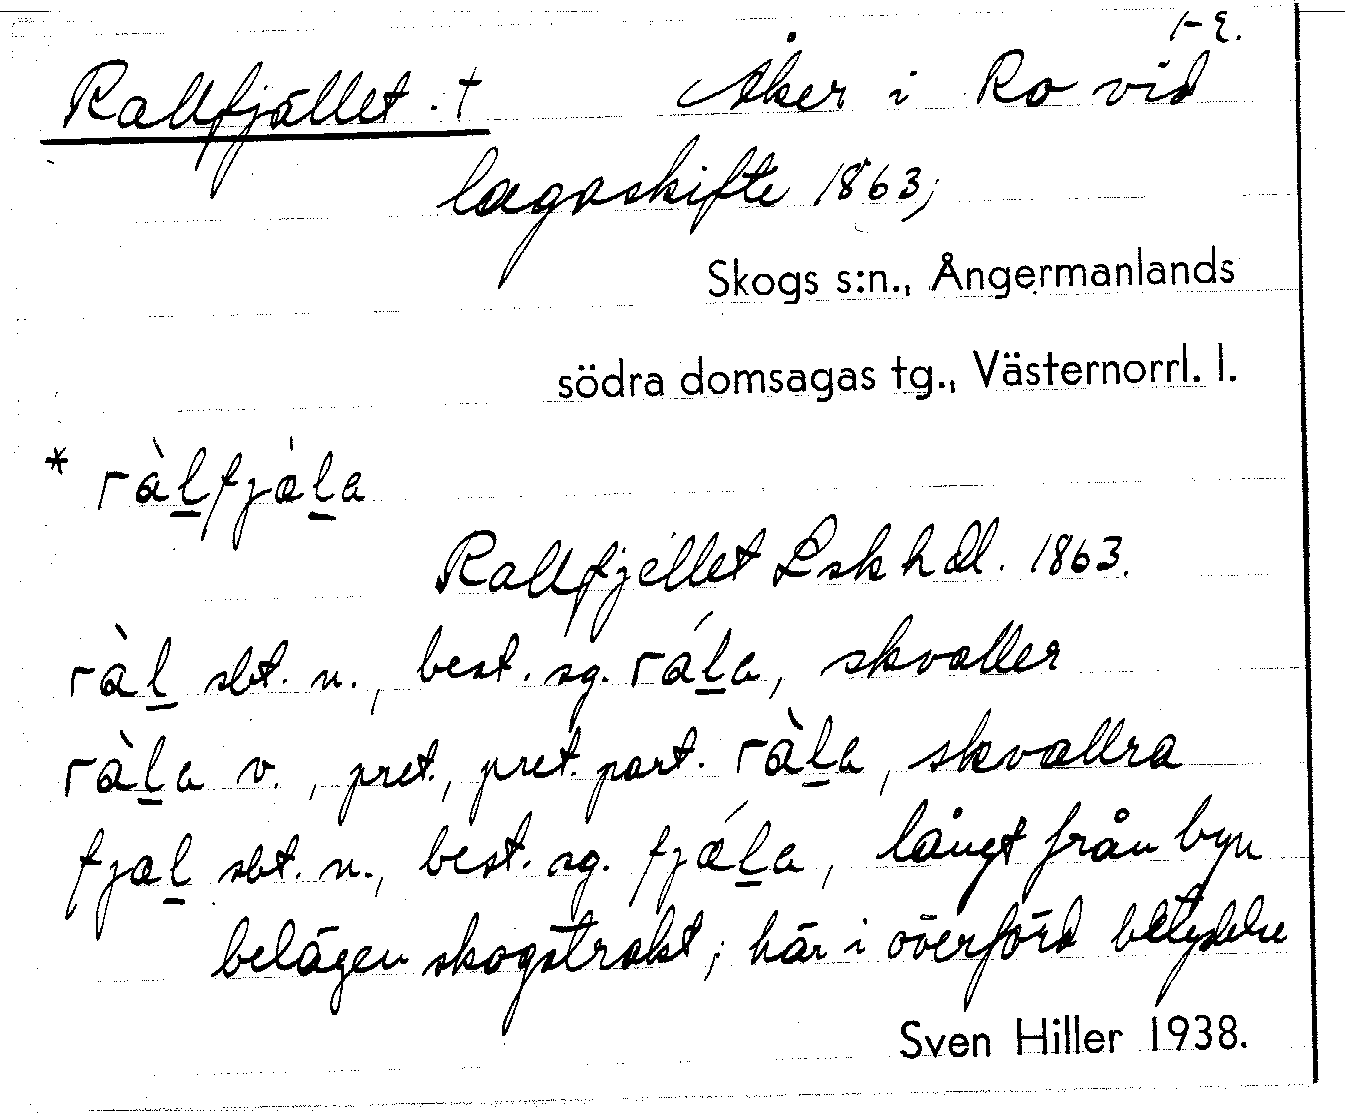 1-2.
Rallfjället. † Åker i Ro vid
lagaskifte 1863;
Skogs s:n., Ångermanlands
södra domsagas tg., Västernorrl. l.
* ràl̲fjàl̲a
Rallfjellet Lskhdl. 1863.
ràl̲ sbt. n., best. sg. rál̲a, skvaller
ràl̲a v., pret., pret. part. ràl̲a, skvallra
fjal̲ sbt. n., best. sg. fjál̲a, långt från byn
belägen skogstrakt; här i överförd betydelse
Sven Hiller 1938.